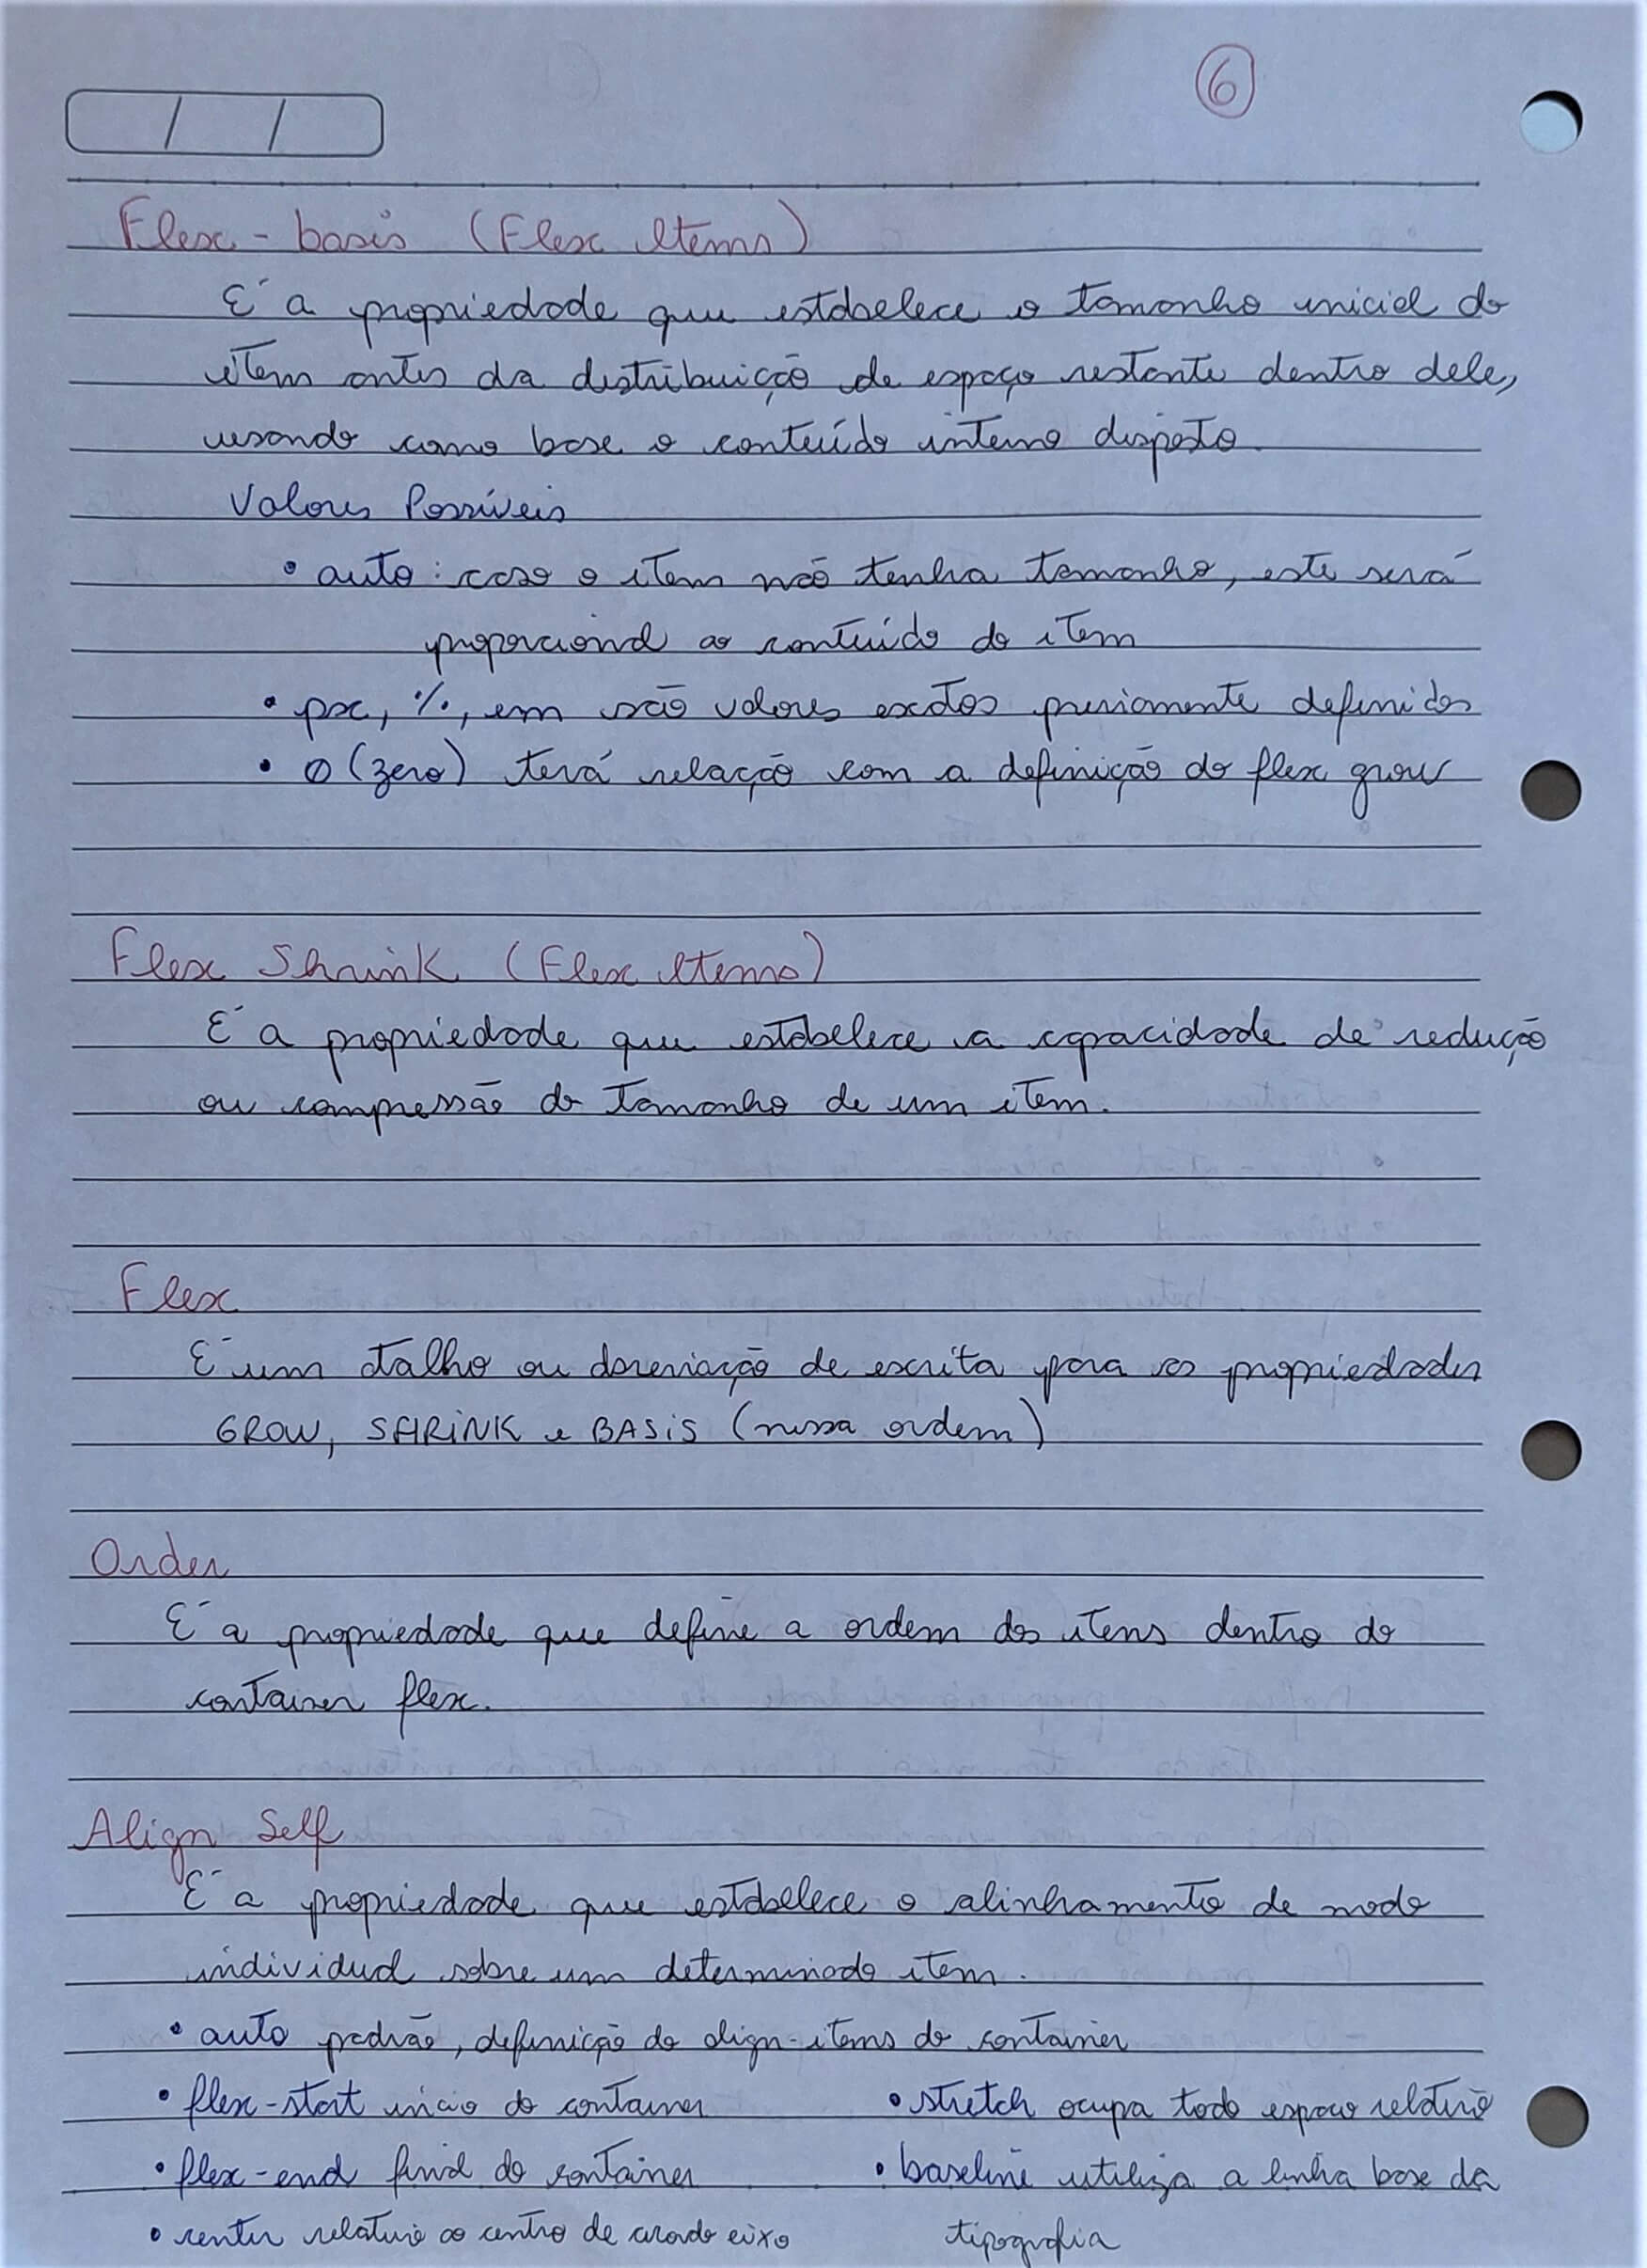 6
/ /
Flex-basis (Flex Items)
É a propriedade que estabelece o tamanho inicial do
item antes da distribuição de espaço restante dentro dele,
usando como base o conteúdo interno disposto.
Valores Possíveis
• auto: caso o item não tenha tamanho, este será
proporcional ao conteúdo do item
• px, %, em são valores exatos previamente definidos
• 0 (zero) terá relação com a definição do flex grow
Flex Shrink (Flex Items)
É a propriedade que estabelece a capacidade de redução
ou compressão do tamanho de um item.
Flex
É um atalho ou abreviação de escrita para as propriedades
GROW, SHRINK e BASIS (nessa ordem)
Order
É a propriedade que define a ordem dos itens dentro do
container flex.
Align Self
É a propriedade que estabelece o alinhamento de modo
individual sobre um determinado item.
• auto padrão, definição do align-items do container
• flex-start início do container
• stretch ocupa todo espaço relativo
• flex-end final do container
• baseline utiliza a linha base da
• center relativo ao centro de acordo eixo
tipografia